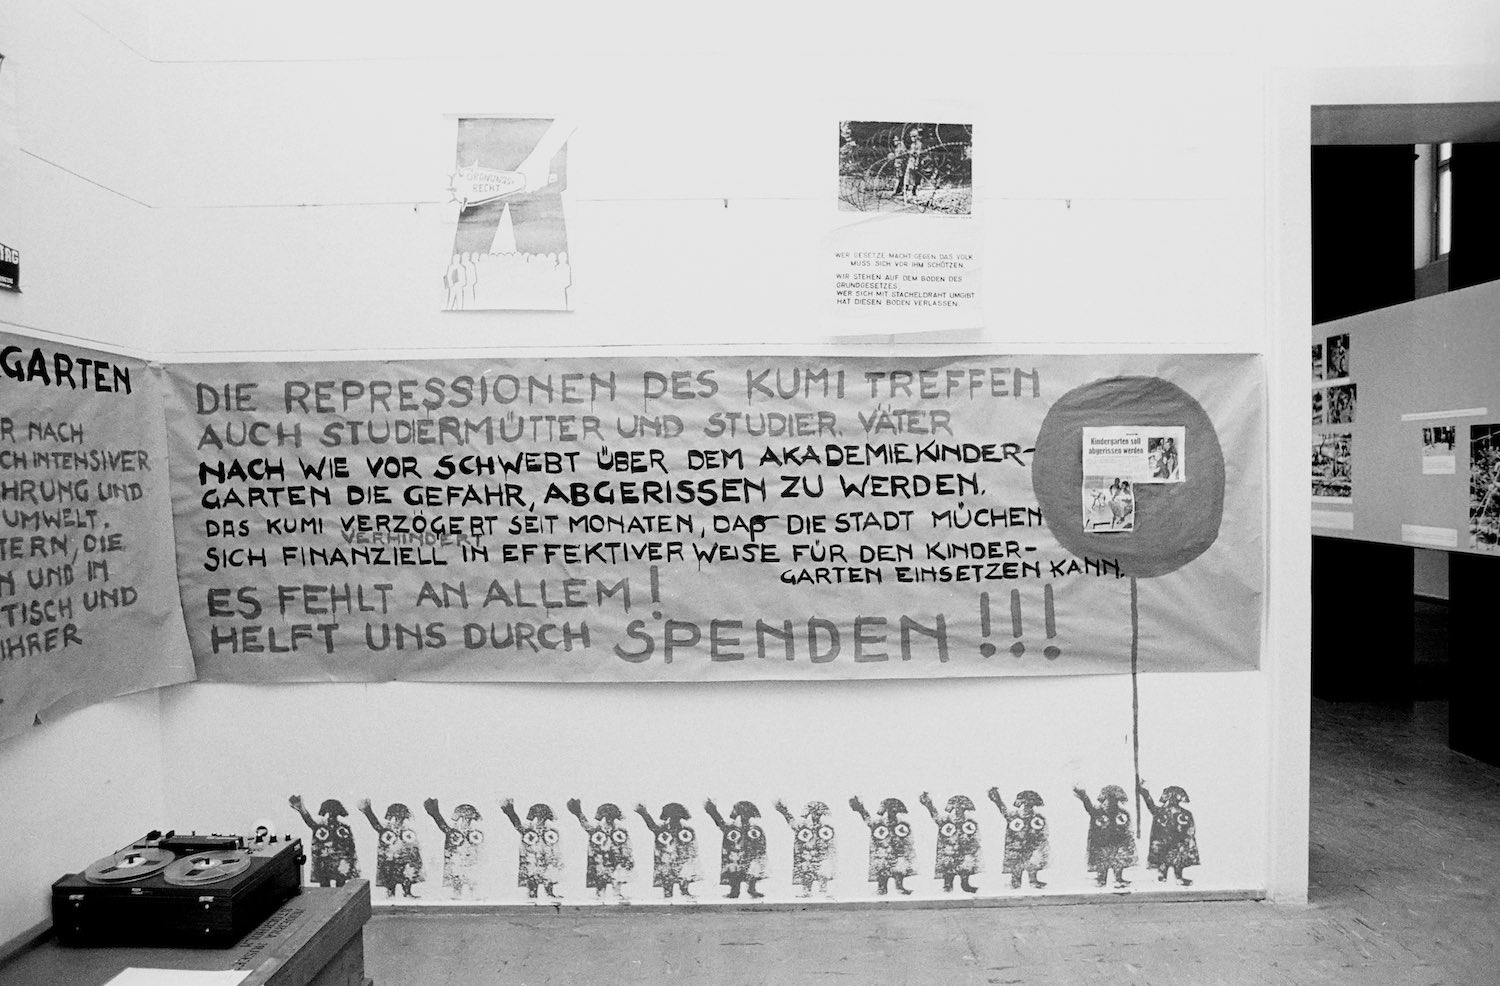 ORDNUNGS-
RECHT
WER GESETZE MACHT GEGEN DAS VOLK
MUSS SICH VOR IHM SCHÜTZEN.
WIR STEHEN AUF DEM BODEN DES
GRUNDGESETZES,
WER SICH MIT STACHELDRAHT UMGIBT
HAT DIESEN BODEN VERLASSEN.
GARTEN
R NACH
CH INTENSIVER
HRUNG UND
UMWELT.
TERN, DIE
N UND IN
TISCH UND
IHRER
DIE REPRESSIONEN DES KUMI TREFFEN
AUCH STUDIERMÜTTER UND STUDIER. VÄTER
NACH WIE VOR SCHWEBT ÜBER DEM AKADEMIEKINDER-
GARTEN DIE GEFAHR, ABGERISSEN ZU WERDEN.
DAS KUMI VERZÖGERT SEIT MONATEN, DAß DIE STADT MÜCHEN
VERHINDERT
SICH FINANZIELL IN EFFEKTIVER WEISE FÜR DEN KINDER-
GARTEN EINSETZEN KANN.
ES FEHLT AN ALLEM!
HELFT UNS DURCH SPENDEN!!!
Kindergarten soll
abgerissen werden